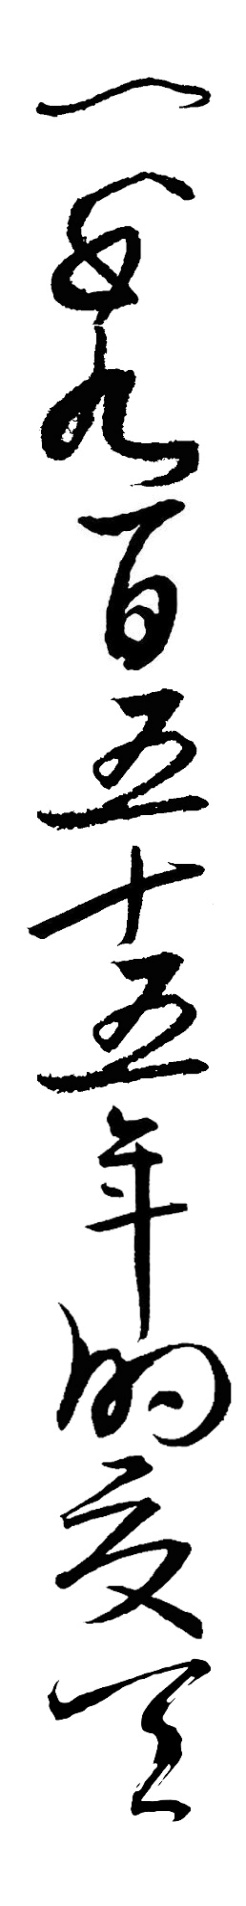 一千九百五十五年的夏天